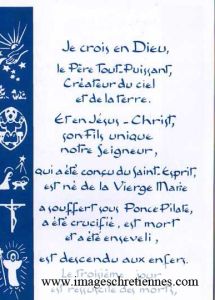 Je crois en Dieu,
le Père Tout-Puissant,
Créateur du ciel
et de la terre.
Et en Jésus-Christ,
son Fils unique
notre Seigneur,
qui a été conçu du Saint-Esprit,
est né de la Vierge Marie
a souffert sous Ponce Pilate,
a été crucifié, est mort
et a été enseveli,
est descendu aux enfers.
Le troisième jour
est ressuscité des morts,
www.imageschretiennes.com